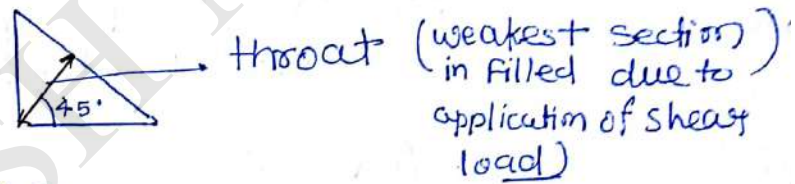 throat (weakest section)
in filled due to
application of shear
load)
45°